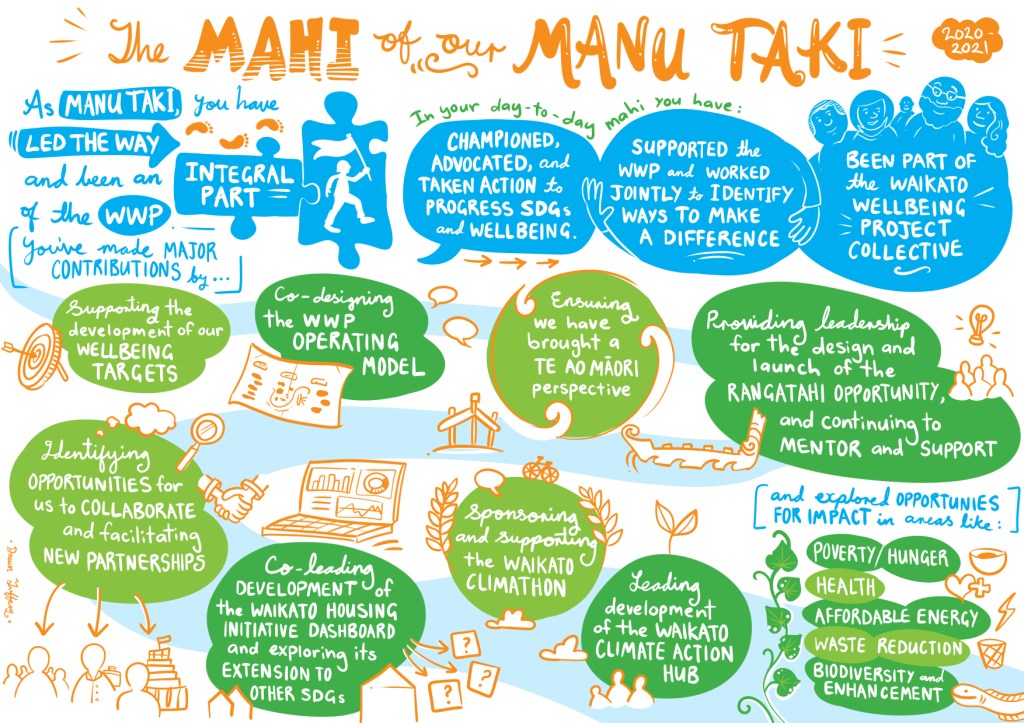 The MAHI of our MANU TAKI
2020-
2021
As MANU TAKI, you have
LED THE WAY
and been an
INTEGRAL
PART
of the WWP
You've made MAJOR
CONTRIBUTIONS by...
In your day-to-day mahi you have:
CHAMPIONED,
ADVOCATED, and
TAKEN ACTION to
PROGRESS SDGs
and WELLBEING.
SUPPORTED the
WWP and WORKED
JOINTLY to IDENTIFY
WAYS TO MAKE
A DIFFERENCE
BEEN PART OF
the WAIKATO
WELLBEING
PROJECT
COLLECTIVE
Supporting the
development of our
WELLBEING
TARGETS
Co-designing
the WWP
OPERATING
MODEL
Ensuring
we have
brought a
TE AO MĀORI
perspective
Providing leadership
for the design and
launch of the
RANGATAHI OPPORTUNITY,
and continuing to
MENTOR and SUPPORT
Identifying
OPPORTUNITIES for
us to COLLABORATE
and facilitating
NEW PARTNERSHIPS
Co-leading
DEVELOPMENT of
the WAIKATO HOUSING
INITIATIVE DASHBOARD
and exploring its
EXTENSION TO
OTHER SDGs
?
?
?
Sponsoring
and supporting
the WAIKATO
CLIMATHON
Leading
development
of the WAIKATO
CLIMATE ACTION
HUB
and explored OPPORTUNIES
FOR IMPACT in areas like:
POVERTY/HUNGER
HEALTH
AFFORDABLE ENERGY
WASTE REDUCTION
BIODIVERSITY and
ENHANCEMENT